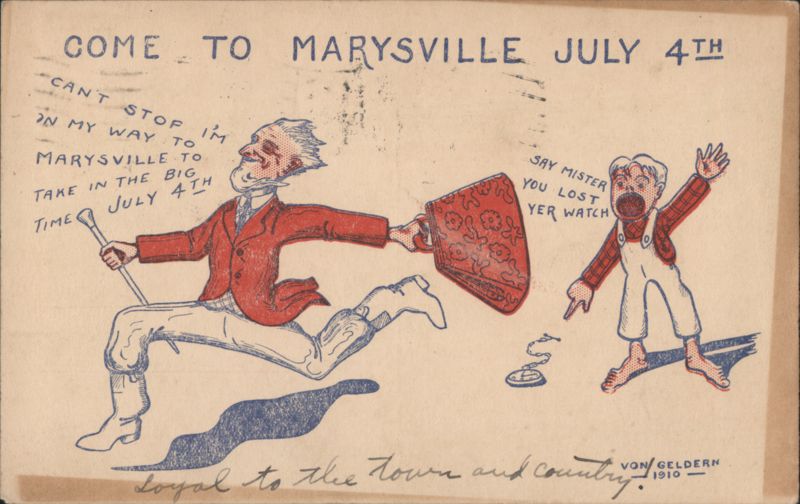 COME TO MARYSVILLE JULY 4TH
CANT STOP I'M
ON MY WAY TO
MARYSVILLE TO
TAKE IN THE BIG
TIME JULY 4TH
SAY MISTER
YOU LOST
YER WATCH
VON GELDERN
1910
Loyal to the town and country!